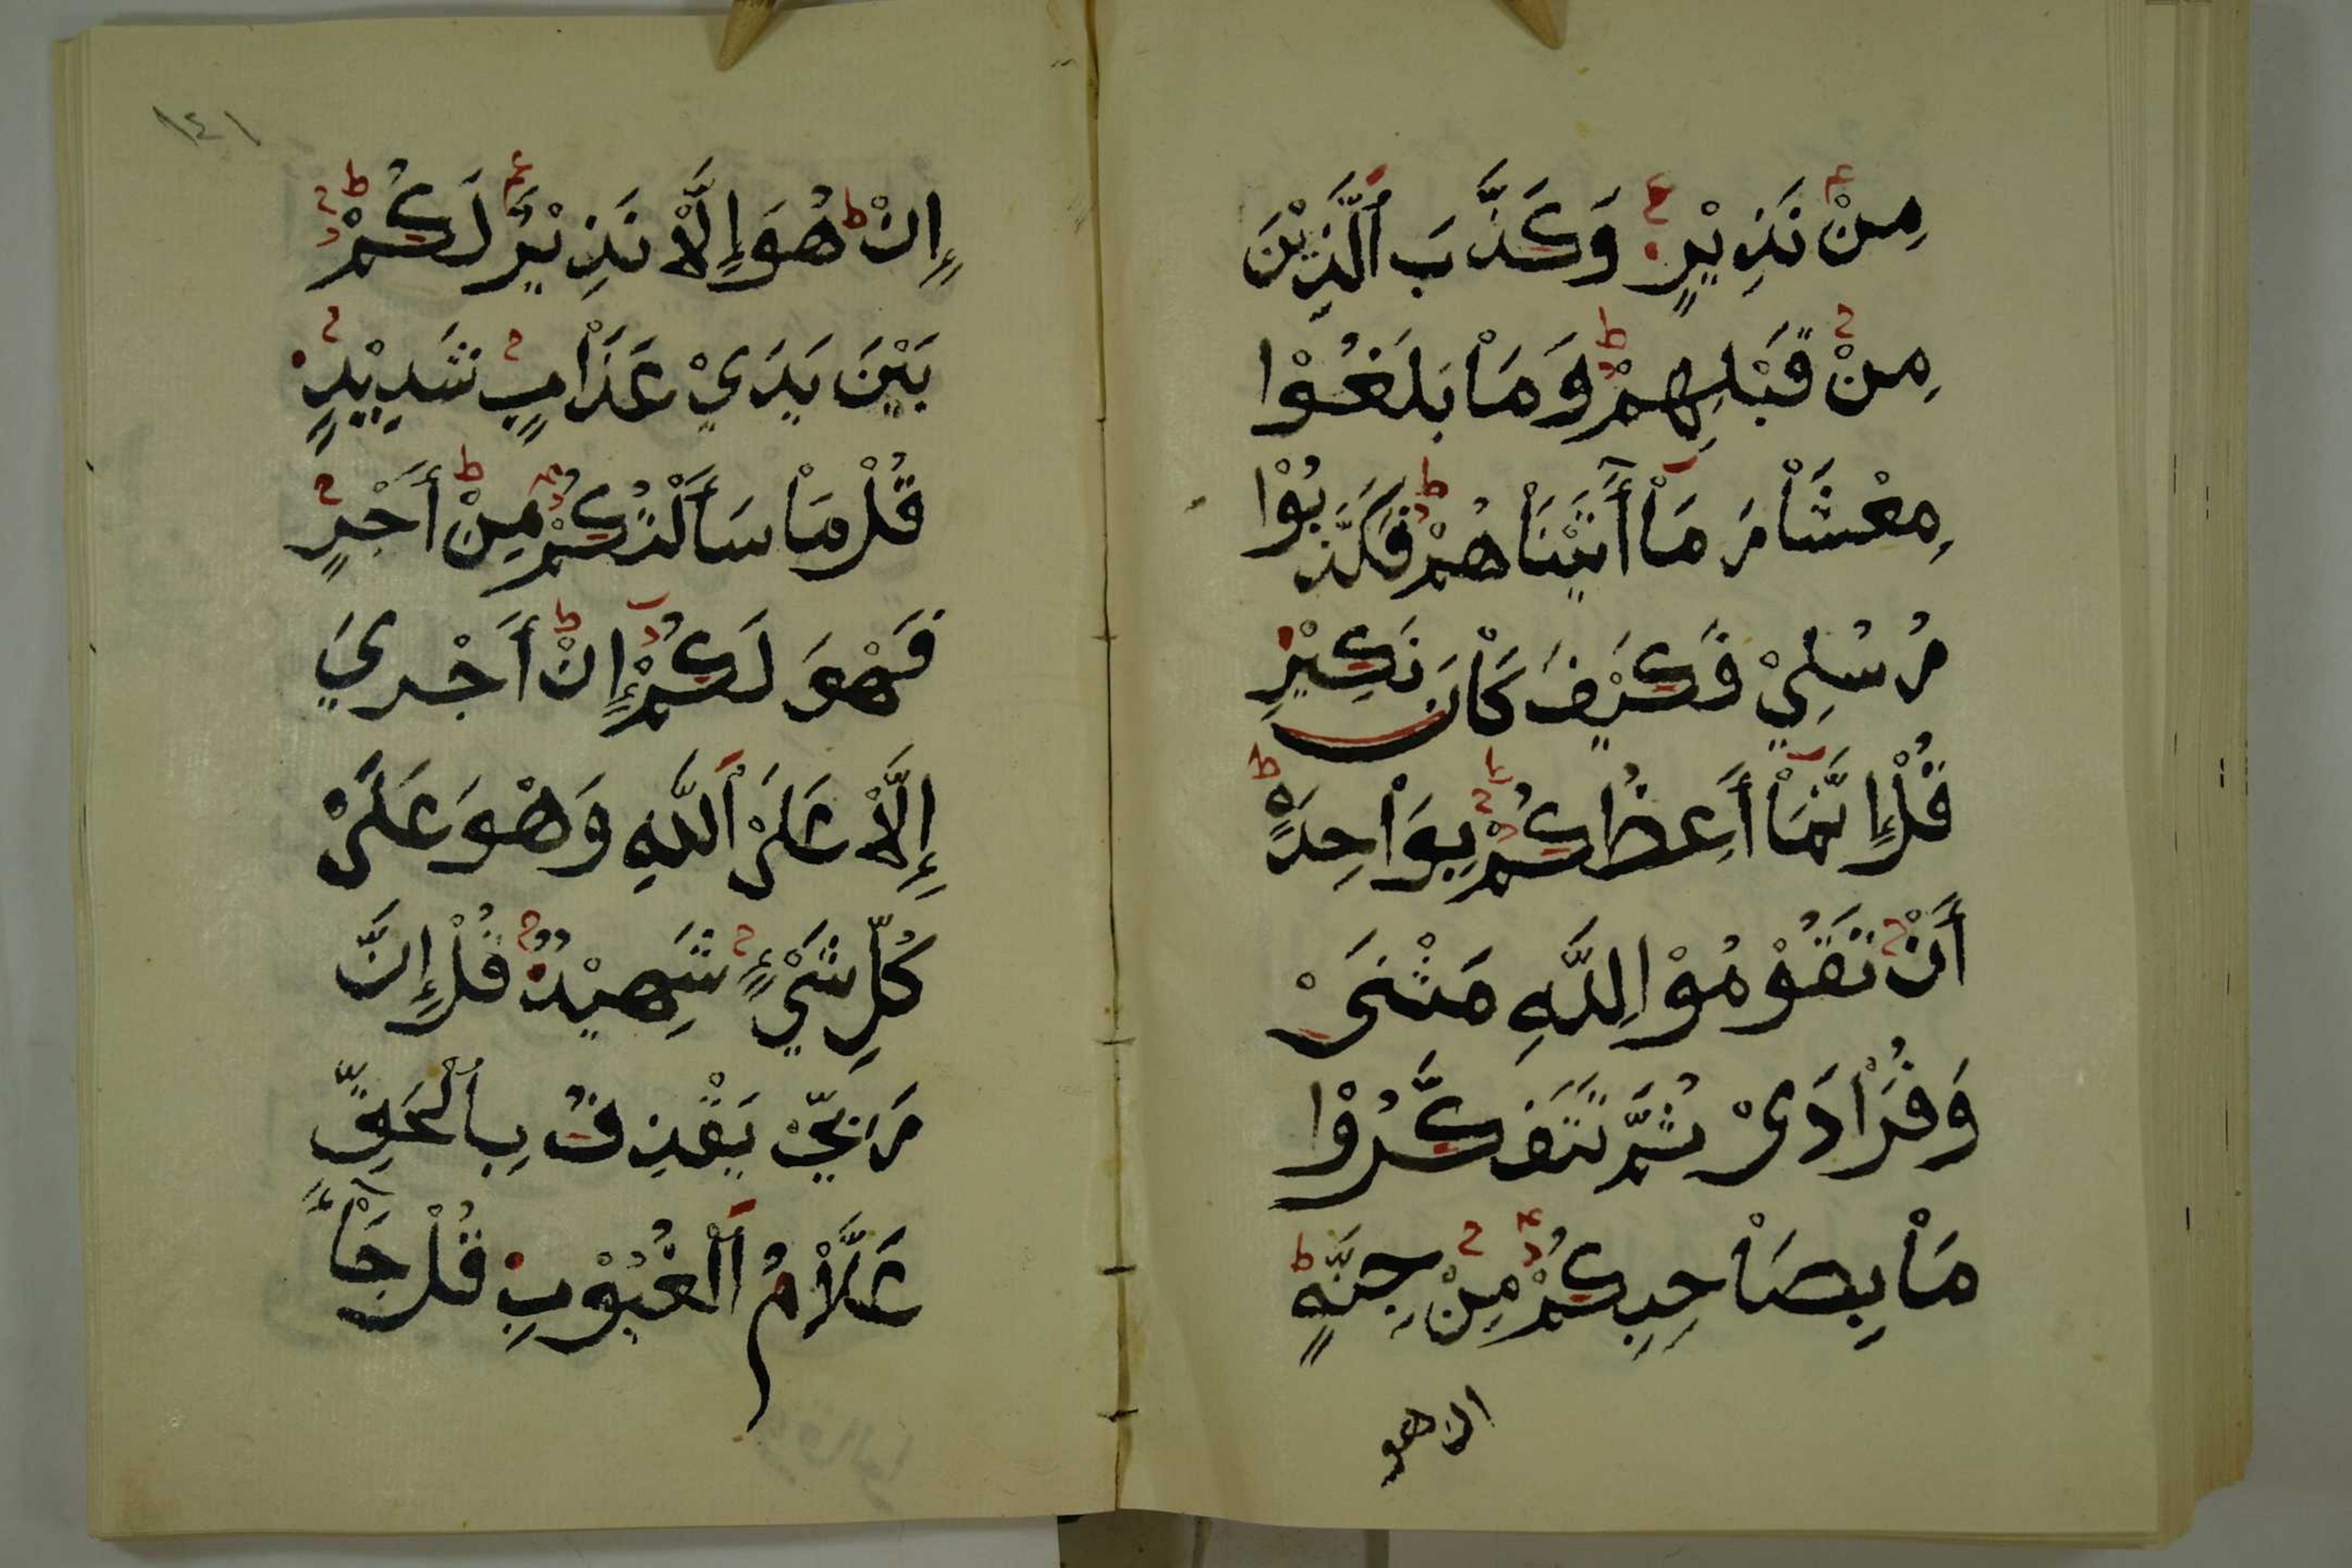 مِنْ نَذِيْرٍ وَكَذَّبَ ٱلَّذِيْنَ
مِنْ قَبْلِهِمْ وَمَاْ بَلَغُوْا
مِعْشَاْرَ مَاْ أٓتَيْنَاْهُمْ فَكَذَّبُوْا
رُسُلِيْ فَكَيْفَ كَاْنَ نَكِيْرِ
قُلْ إِنَّمَاْ أَعِظُكُمْ بِوَاْحِدَةٍ
أَنْ تَقُوْمُوْا لِلَّهِ مَثْنَىْ
وَفُرَاْدَىْ ثُمَّ تَتَفَكَّرُوْا
مَاْ بِصَاْحِبِكُمْ مِنْ جِنَّةٍ
ان هو
١٤١
إِنْ هُوَ إِلَّاْ نَذِيْرٌ لَكُمْ
بَيْنَ يَدَيْ عَذَاْبٍ شَدِيْدٍ
قُلْ مَاْ سَأَلْتُكُمْ مِنْ أَجْرٍ
فَهْوَ لَكُمْ إِنْ أَجْرِيَ
إِلَّاْ عَلَىْ ٱللَّهِ وَهْوَ عَلَىْ
كُلِّ شَيْءٍ شَهِيْدٌ قُلْ إِنَّ
رَبِّيْ يَقْذِفُ بِٱلْحَقِّ
عَلَّاْمُ ٱلْغُيُوْبِ قُلْ جَآْءَ